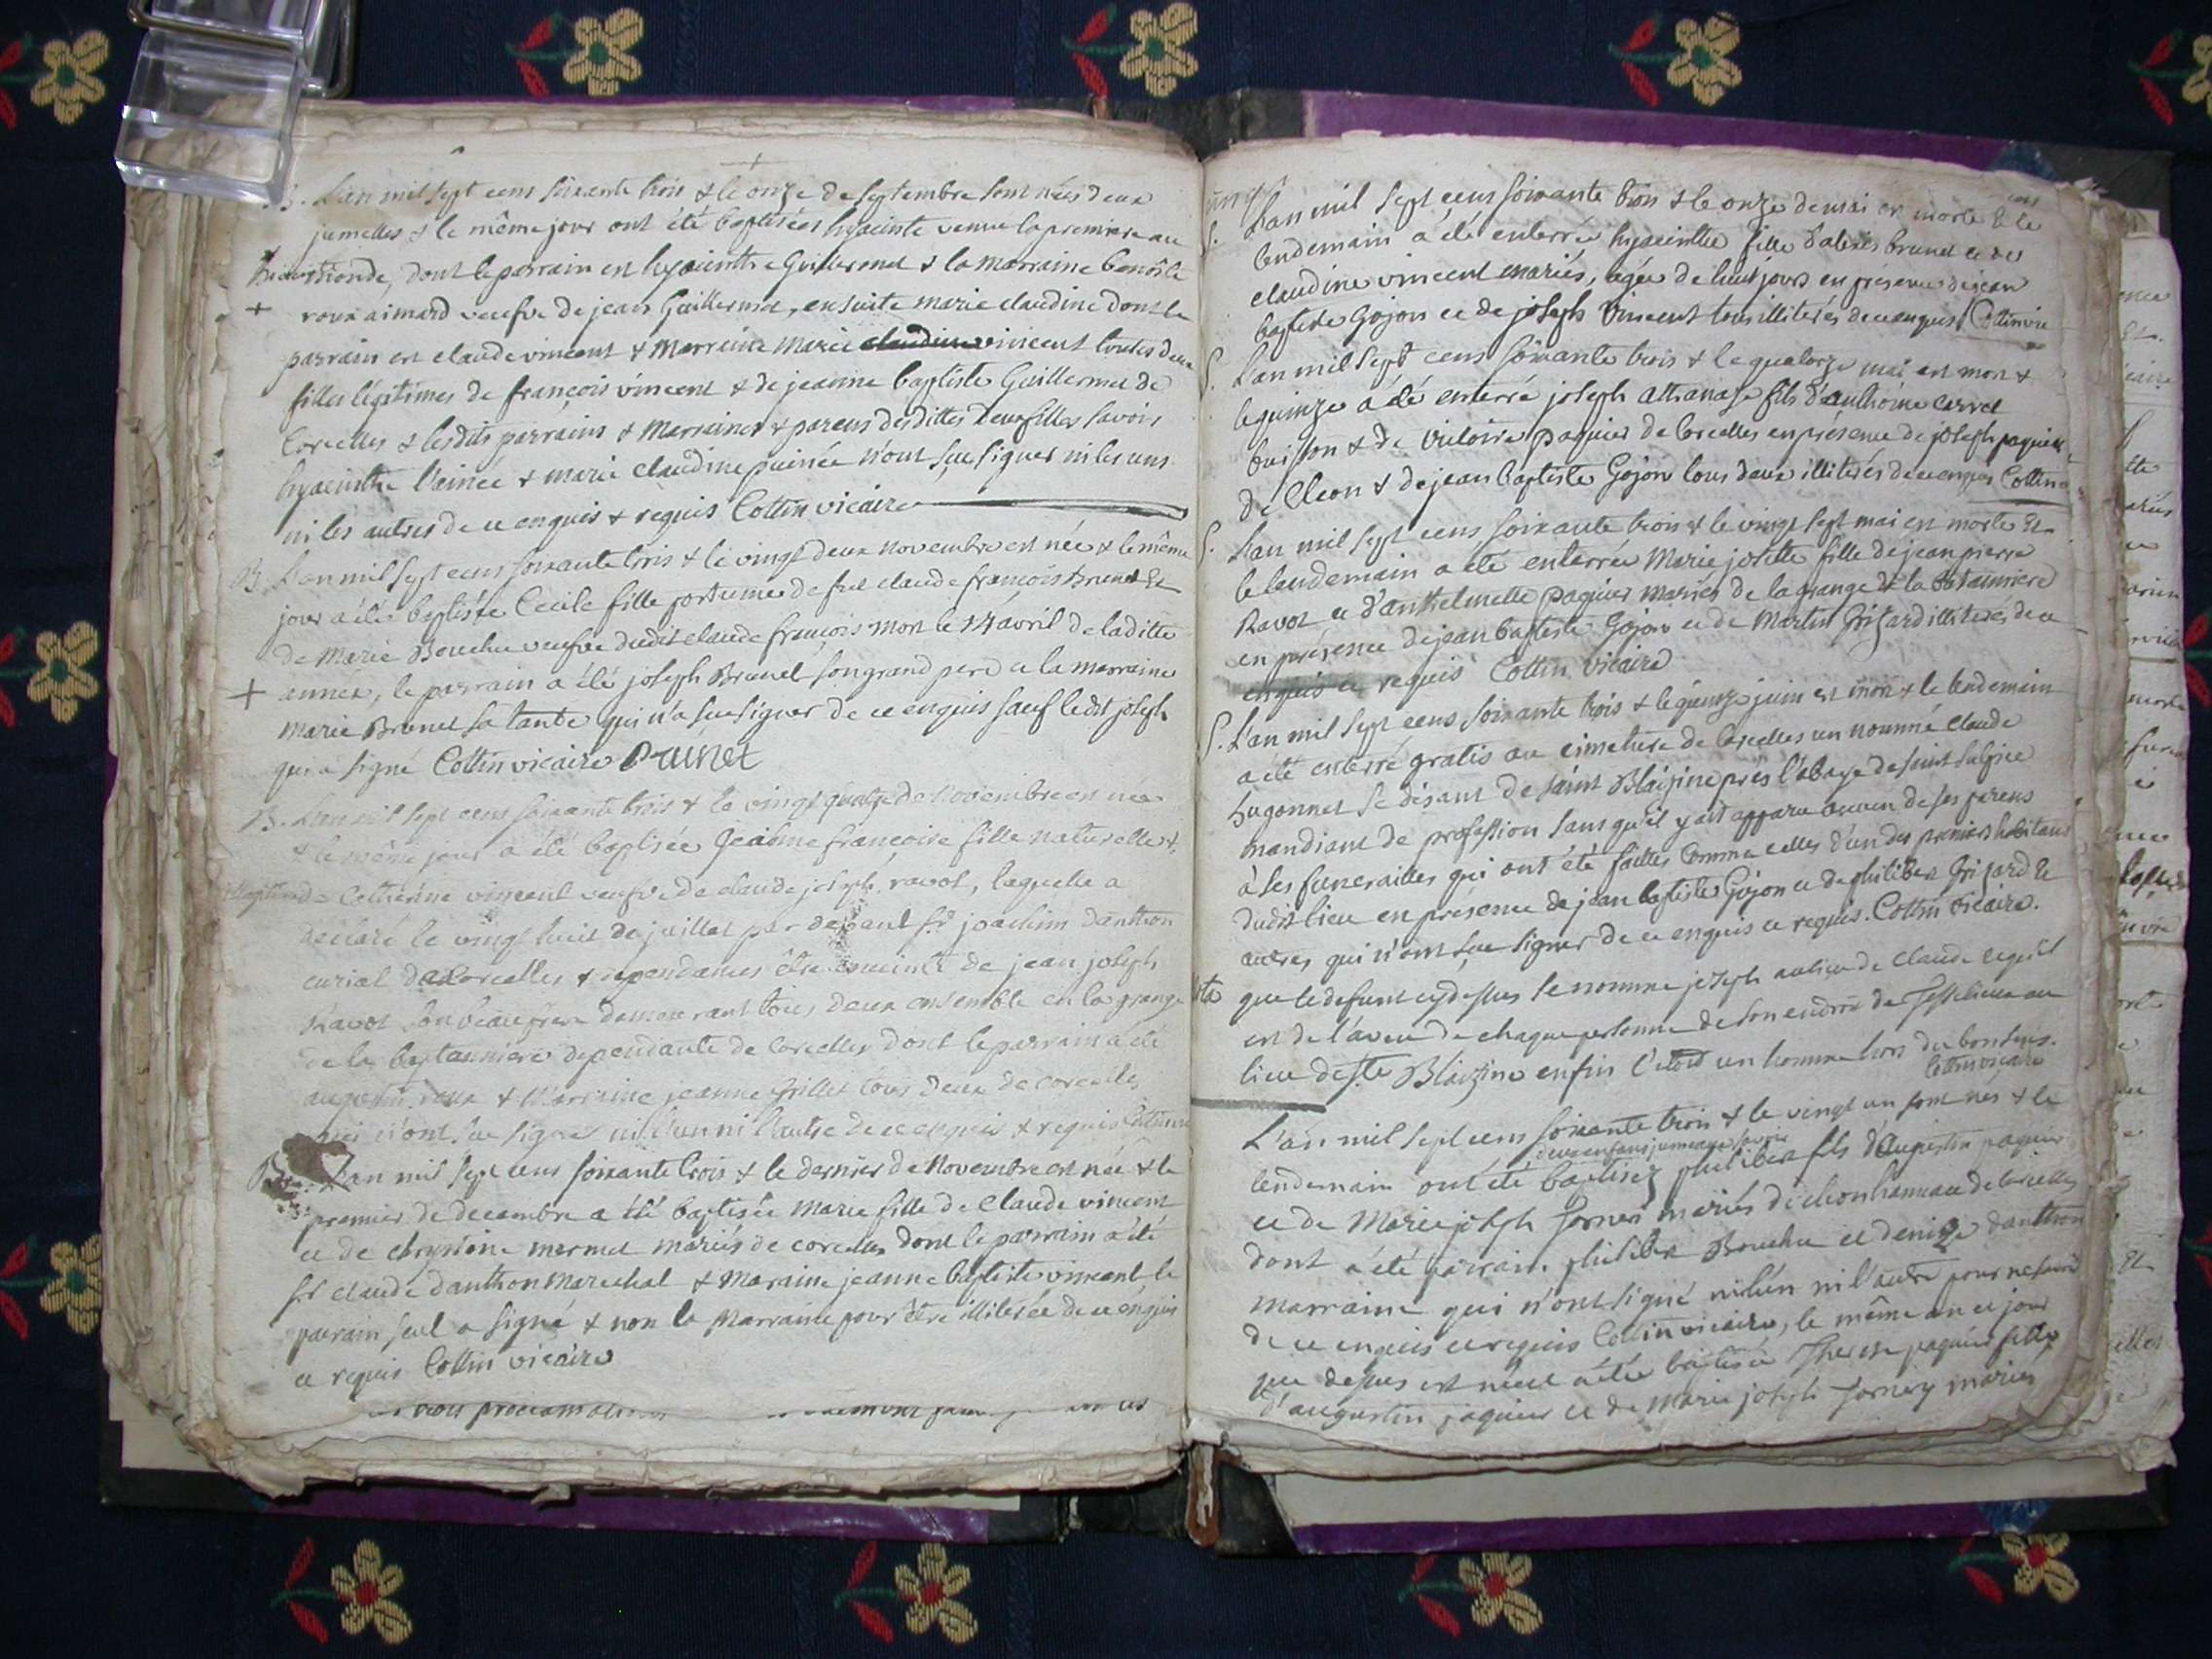 B. L'an mil sept cens soixante trois & le onze de septembre sont nées deux
jumelles & le même jour ont été baptisées hyacinte venue la premiere au
monde, dont le parrain est hyacinthe Guillermet & la marraine benoîte
+ roux aimard veufve de jean Guillermet, ensuite marie claudine dont le
parrain est claude vincent & marraine marie vincent toutes deux
filles légitimes de françois vincent & de jeanne baptiste Guillermet de
Corcelles & lesdits parrains & marraines & parens desdittes deux filles savoir
hyacinthe l'ainée & marie claudine puinée n'ont sçu signer ni les uns
ni les autres de ce enquis & requis Cottin vicaire
B. L'an mil sept cens soixante trois & le vingt deux novembre est née & le même
jour a été baptisée Cecile fille postume de feu claude françois Brunet Et
de Marie Bouchu veufve dudit claude françois mort le 14 avril de laditte
+ année, le parrain a été joseph Brunet son grand pere et la marraine
marie Brunet sa tante qui n'a sçu signer de ce enquis sauf ledit joseph
qui a signé Cottin vicaire Brunet
B. L'an mil sept cens soixante trois & le vingt quatre de Novembre est née
& le même jour a été baptisée Jeanne françoise fille naturelle &
de Catherine vincent veufve de claude joseph ravot, laquelle a
declaré le vingt huit de juillet par devant sr joachim Danthon
curial de Corcelles & dependances être enceinte de jean joseph
Ravot son beaufrere demeurant tous deux ensemble en la grange
de la bastanniere dependante de Corcelles dont le parrain a été
augustin roux & Marraine jeanne grillet tous deux de corcelles
qui n'ont sçu signer ni l'un ni l'autre de ce enquis & requis Cottin
B. L'an mil sept cens soixante trois & le dernier de Novembre est née & le
premier de decembre a été baptisée marie fille de Claude vincent
et de mermet mariés de corcelles dont le parrain a été
sr claude danthon marechal & maraine jeanne baptiste vincent le
parrain seul a signé & non la Marraine pour être illiterée de ce enquis
et requis Cottin vicaire
trois proclamations
S. L'an mil sept cens soixante trois & le onze de mai est morte & le
lendemain a été enterrée hyacinthe fille d'alexis brunet et de
claudine vincent mariés, agée de huit jours en présence de jean
baptiste Gojon et de joseph Vincent tous illiterés de ce enquis Cottin vic
S. L'an mil sept cens soixante trois & le quatorze mai est mort &
le quinze a été enterré joseph athanase fils d'anthoine carrel
buisson & de Victoire paquier de Corcelles en présence de joseph paquier
de Cleon & de jean baptiste Gojon tous deux illiterés de ce enquis Cottin
S. L'an mil sept cens soixante trois & le vingt sept mai est morte Et
le lendemain a été enterrée Marie josette fille de jean pierre
Ravot et d'anthelmette paquier mariés de la grange de la bastanniere
en présence de jean baptiste Gojon et de Martin Grisard illiterés de ce
enquis et requis Cottin vicaire
S. L'an mil sept cens soixante trois & le quinze juin est mort & le lendemain
a été enterré gratis au cimetiere de Corcelles un nommé claude
hugonnet se disant de saint Blaizine près l'abaye de saint sulpice
mandiant de profession sans qu'il y ait apparu aucun de ses parens
à ses funerailles qui ont été faittes comme celles d'un des premiers habitans
dudit lieu en présence de jean baptiste Gojon et de philibert Grisard &
autres qui n'ont sçu signer de ce enquis et requis. Cottin vicaire.
que le defunt cy dessus se nomme joseph au lieu de claude et qu'il
est de l'aveu de chaque personne de son endroit de
lieu de ste Blaizine enfin c'etoit un homme hors du bon sens.
Cottin vicaire
L'an mil sept cens soixante trois & le vingt un sont nés & le
deux enfans jumeaux savoir
lendemain ont été baptisez philibert fils d'Augustin paquier
et de Marie joseph Jornery mariés de cleon hameau de Corcelles
dont a été parrain philibert Bouchu et denize danthon
marraine qui n'ont signé ni l'un ni l'autre pour ne savoir
de ce enquis et requis Cottin vicaire, le même an et jour
que dessus est née et a été baptisée Therese paquier fille
d'augustin paquier et de Marie joseph Jornery mariés